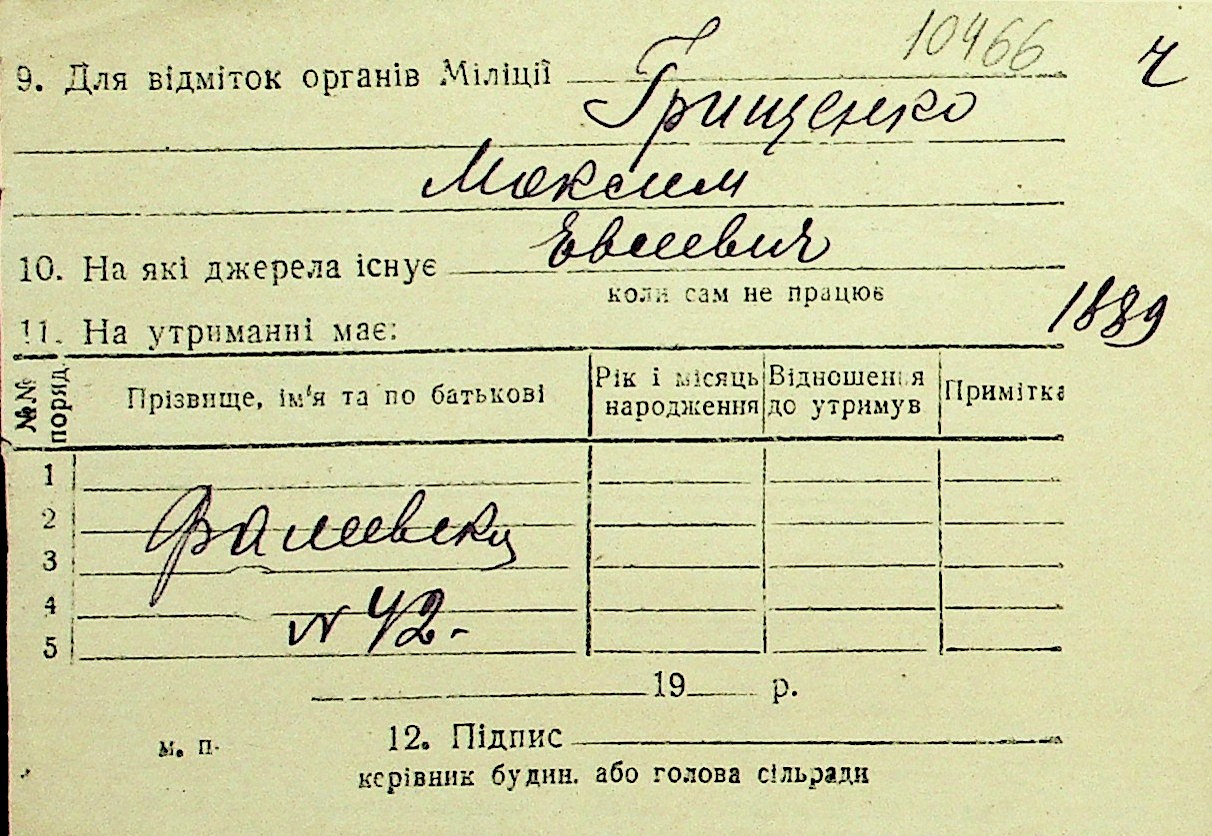 10466
ч
9. Для відміток органів Міліції Грищенко
Максим
Евсеевич
10. На які джерела існує
коли сам не працює
1889
11. На утриманні має:
№№ поряд. Прізвище, ім'я та по батькові Рік і місяць народження Відношення до утримув Примітка
1
2
3
4
№ 42.
5
19 р.
м. п. 12. Підпис
керівник будин. або голова сільради